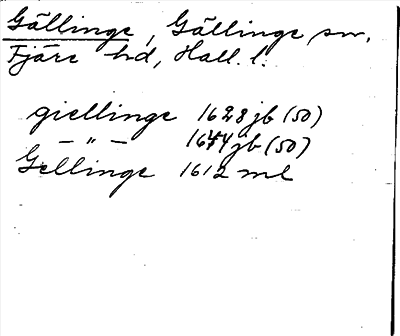 Gällinge, Gällinge sn,
Fjäre hd, Hall. l.
giellinge 1628 jb (50)
— " — 1644 jb (50)
Gellinge 1612 ml